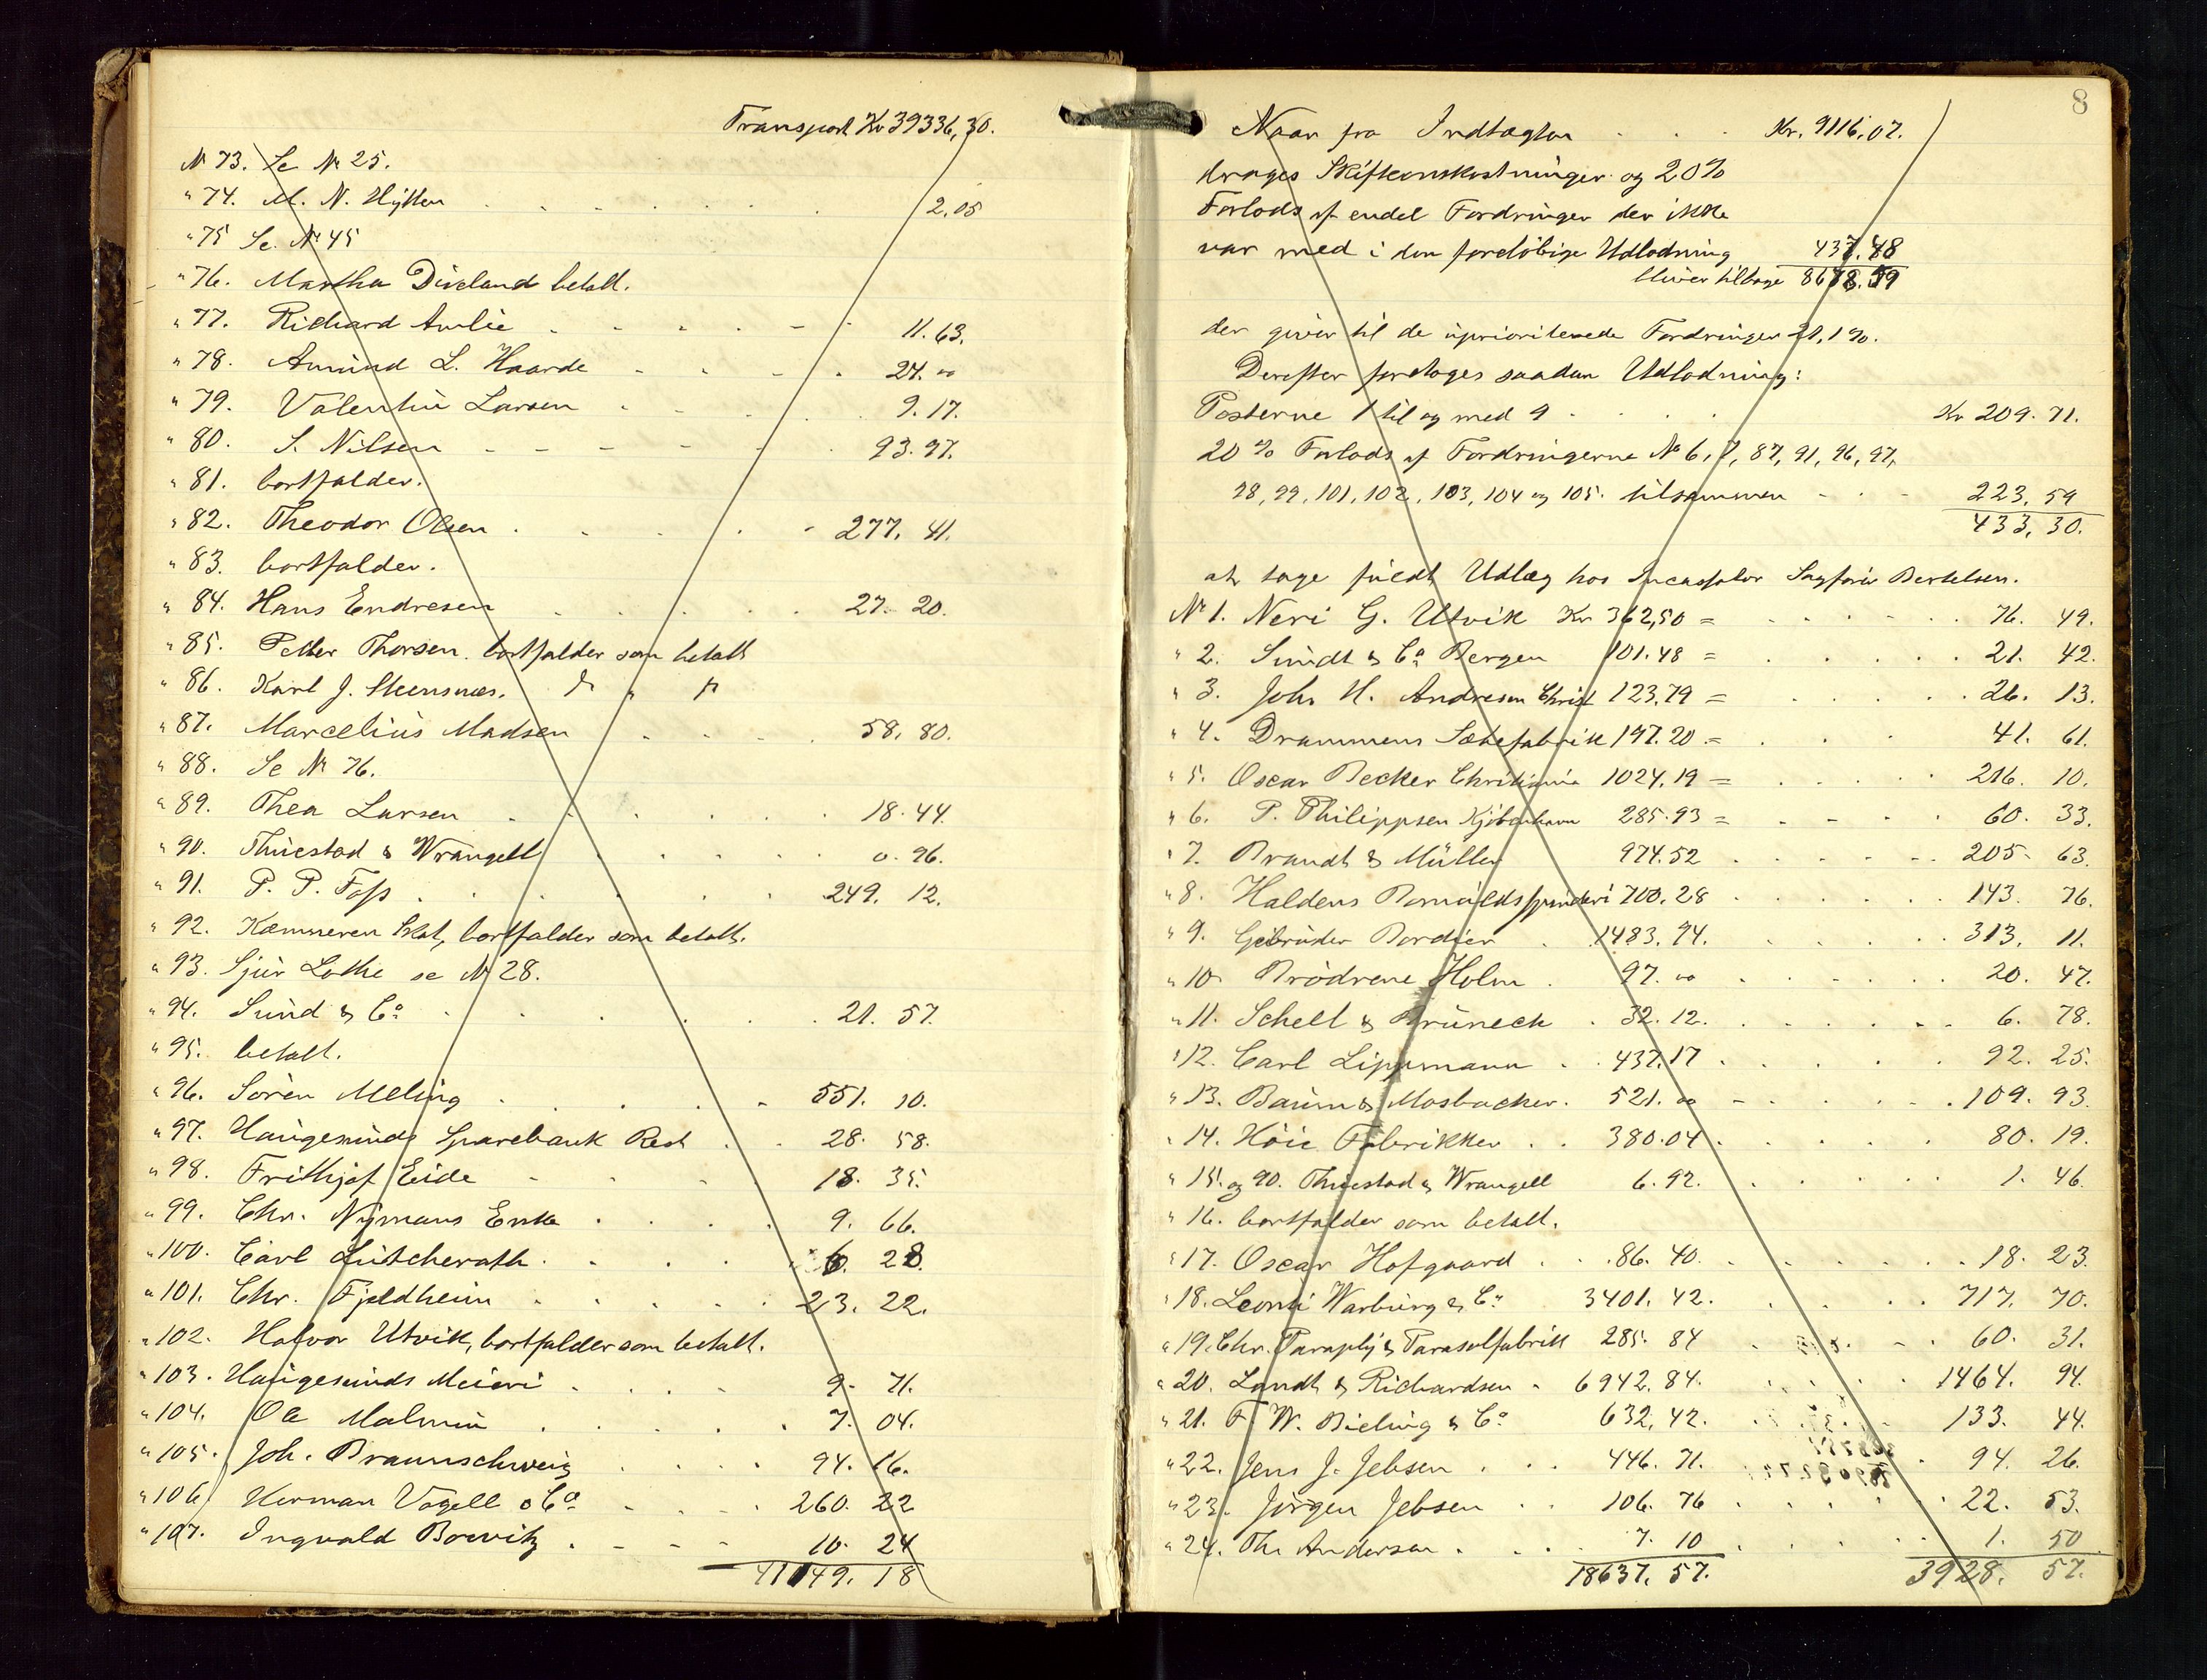 Transport Kr 39336,30.
N 73. Se Nr 25.
" 74. M. N. Hytten . . . . . . 2.05
" 75 Se. Nr 45
" 76. Martha Diveland betalt.
" 77. Richard Amlie . . . . . 11.63.
" 78. Amund L. Haarde . . . . 24. 00
" 79. Valentin Larsen . . . . 9.17.
" 80. S. Nilsen . . . . . 93.97.
" 81. bortfalder.
" 82. Theodor Olsen . . . . 277. 41.
" 83. bortfalder.
" 84. Hans Endresen . . . . 27. 20.
" 85. Petter Thorsen. bortfalder som betalt
" 86. Karl J. Steensnæs. do " do
" 87. Marcelius Madsen . . . 58. 80.
" 88. Se Nr 76.
" 89. Thea Larsen . . . . . 18.44.
" 90. Thuestad & Wrangell . . . . 0. 96.
" 91. P. P. Foss . . . . . 249. 12.
" 92. Kæmneren Skat, bortfalder som betalt.
" 93. Sjur Lothe se Nr 28.
" 94. Sund & Co . . . . . 21. 57.
" 95. betalt.
" 96. Sören Meling . . . . 551. 10.
" 97. Haugesunds Sparebank Rest . . 28. 58.
" 98. Frithjof Eide . . . . 18. 35.
" 99. Chr. Nymans Enke . . . . 9. 66.
" 100. Carl Lutcherath . . . . 6. 28.
" 101. Chr. Fjeldheim . . . . 23. 22.
" 102. Halvor Utvik, bortfalder som betalt.
" 103. Haugesunds Meieri . . . . 9. 71.
" 104. Ole Malmin . . . . 7. 04.
" 105. Joh. Braunschweig . . . . 94. 16.
" 106. Herman Vogell & Co . . . 260. 22
" 107. Ingvald Bowitz . . . . 10. 24
41149. 18
8
Naar fra Indtægten . . . Kr. 9116.07.
drages Skifteomkostninger og 20%
Forlods af endel Fordringer der ikke
var med i den foreløbige Udlodning 437.48
bliver tilbage 8678.59
der giver til de uprioriterede Fordringer 21,1%.
Derefter foretages saadan Udlodning:
Posterne 1 til og med 9 . . . . Kr 209. 71.
20% Forlods af Fordringerne No 6, 7, 87, 91, 96, 97,
98, 99, 101, 102, 103, 104 og 105. tilsammen . . . 223. 59
433. 30.
at tage fuldt Udlæg hos Incassator Sagfører Bertelsen.
Nr 1. Neri G. Utvik Kr 362,50 = . . . . . 76. 49.
" 2. Sundt & Co Bergen 101.48 = . . . . . 21. 42.
" 3. Joh. H. Andresen Christ 123.79 = . . . . 26. 13.
" 4. Drammens Sæbefabrik 197.20 = . . . 41. 61.
" 5. Oscar Becker Christiania 1024.19 = . . . . 216. 10.
" 6. P. Philippsen Kjöbenhavn 285.93 = . . . . 60. 33.
" 7. Brandt & Müller 974.52 . . . . . . 205. 63.
" 8. Haldens Bomuldsspinderi 700.28 . . . . . . 143. 76.
" 9. Gebrüder Bordier . 1483. 94. . . . . . 313. 11.
" 10. Brödrene Holm . 97. 00 . . . . . . 20. 47.
" 11. Schell & Bruneck . 32. 12. . . . . . 6. 78.
" 12. Carl Lippmann . . 437.17 . . . . . 92. 25.
" 13. Baum & Mosbacker . 521. 00 . . . . . 109. 93.
" 14. Höie Fabrikker . . 380.04 . . . . . 80. 19.
" 15. og 90. Thuestad & Wrangell 6.92. . . . . . 1. 46.
" 16. bortfalder som betalt.
" 17. Oscar Hofgaard . . 86. 40. . . . . . 18. 23.
" 18. Leonti Warburg & Co 3401. 42. . . . . 717. 70.
" 19. Chr. Paraply & Parasolfabrik 285. 84 . . . . 60. 31.
" 20. Landt & Richardsen . 6942. 84. . . . . 1464. 94.
" 21. F. W. Bieling & Co 632. 42. . . . . 133. 44.
" 22. Jens J. Jebsen . . . 446. 71. . . 94. 26.
" 23. Jörgen Jebsen . . 106. 76 . . . . . 22. 53.
" 24. Th. Andersen . . . 7. 10 . . . . . 1. 50
18637. 57. 3928. 57.